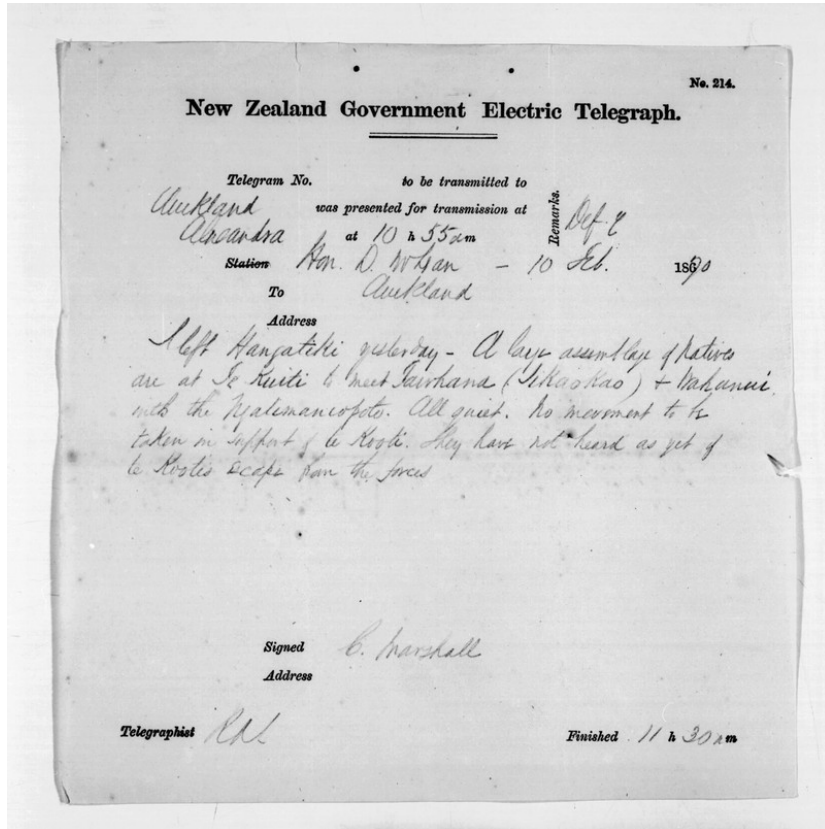 No. 214.
New Zealand Government Electric Telegraph.
Telegram No. to be transmitted to
Auckland was presented for transmission at
Alexandra at 10 h 55 am
Remarks. Def
Station Hon. D. McLean - 10 Feb. 1870
To Auckland
Address
I left Hangatiki yesterday - A large assemblage of Natives
are at Te Kuiti to meet Tawhana (Tikaokao) + Wahanui
with the Ngatimaniopoto. All quiet. No movement to be
taken in support of te Kooti. They have not heard as yet of
te Kootis escape from the forces
Signed C. Marshall
Address
Telegraphist
Finished 11 h 30 am